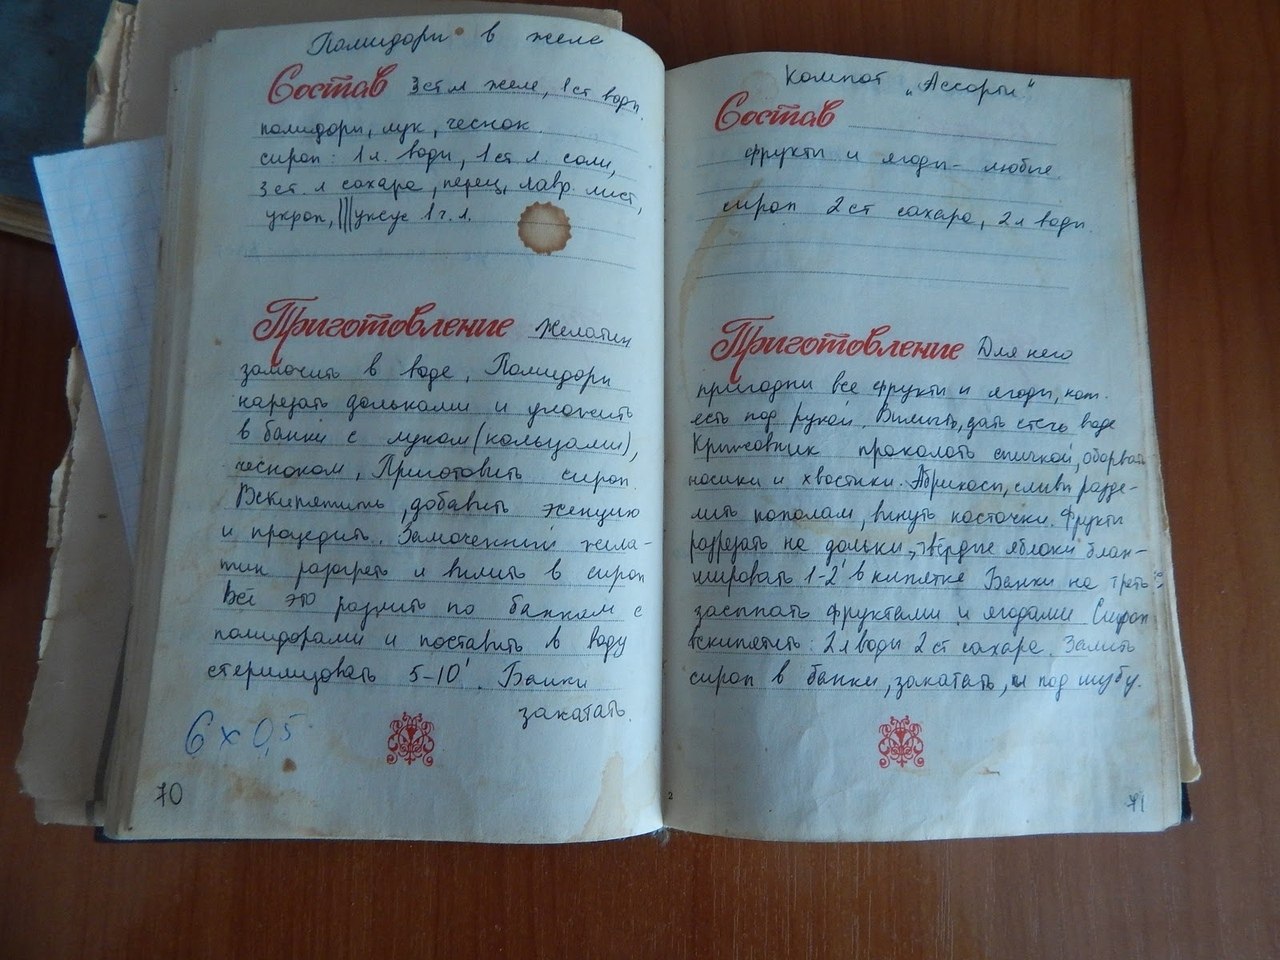 Помидоры в желе
Состав 3 ст л желе, 1 ст воды.
помидоры, лук, чеснок.
сироп: 1 л. воды, 1 ст л. соли,
3 ст. л сахара, перец, лавр. лист,
укроп, уксус 1 ч. л.
Приготовление Желатин
замочить в воде. Помидоры
нарезать дольками и уложить
в банки с луком (кольцами),
чесноком. Приготовить сироп.
Вскипятить, добавить эсенцию
и процедить. Замоченный жела-
тин разогреть и вылить в сироп
Всё это разлить по банкам с
помидорами и поставить в воду
стерилизовать 5-10'. Банки
закатать.
6 x 0,5
70
Компот „Ассорти"
Состав
фрукты и ягоды - любые
сироп 2 ст сахара, 2 л воды.
Приготовление Для него
пригодны все фрукты и ягоды, кот.
есть под рукой. Вымыть, дать стечь воде
Крыжовник проколоть спичкой, оборвать
носики и хвостики. Абрикосы, сливы разде-
лить пополам, вынуть косточки. Фрукты
разрезать на дольки, твёрдые яблоки блан-
шировать 1-2' в кипятке Банки на треть
засыпать фруктами и ягодами Сироп
вскипятить: 2 л воды 2 ст сахара. Залить
сироп в банки, закатать, и под шубу.
2
71